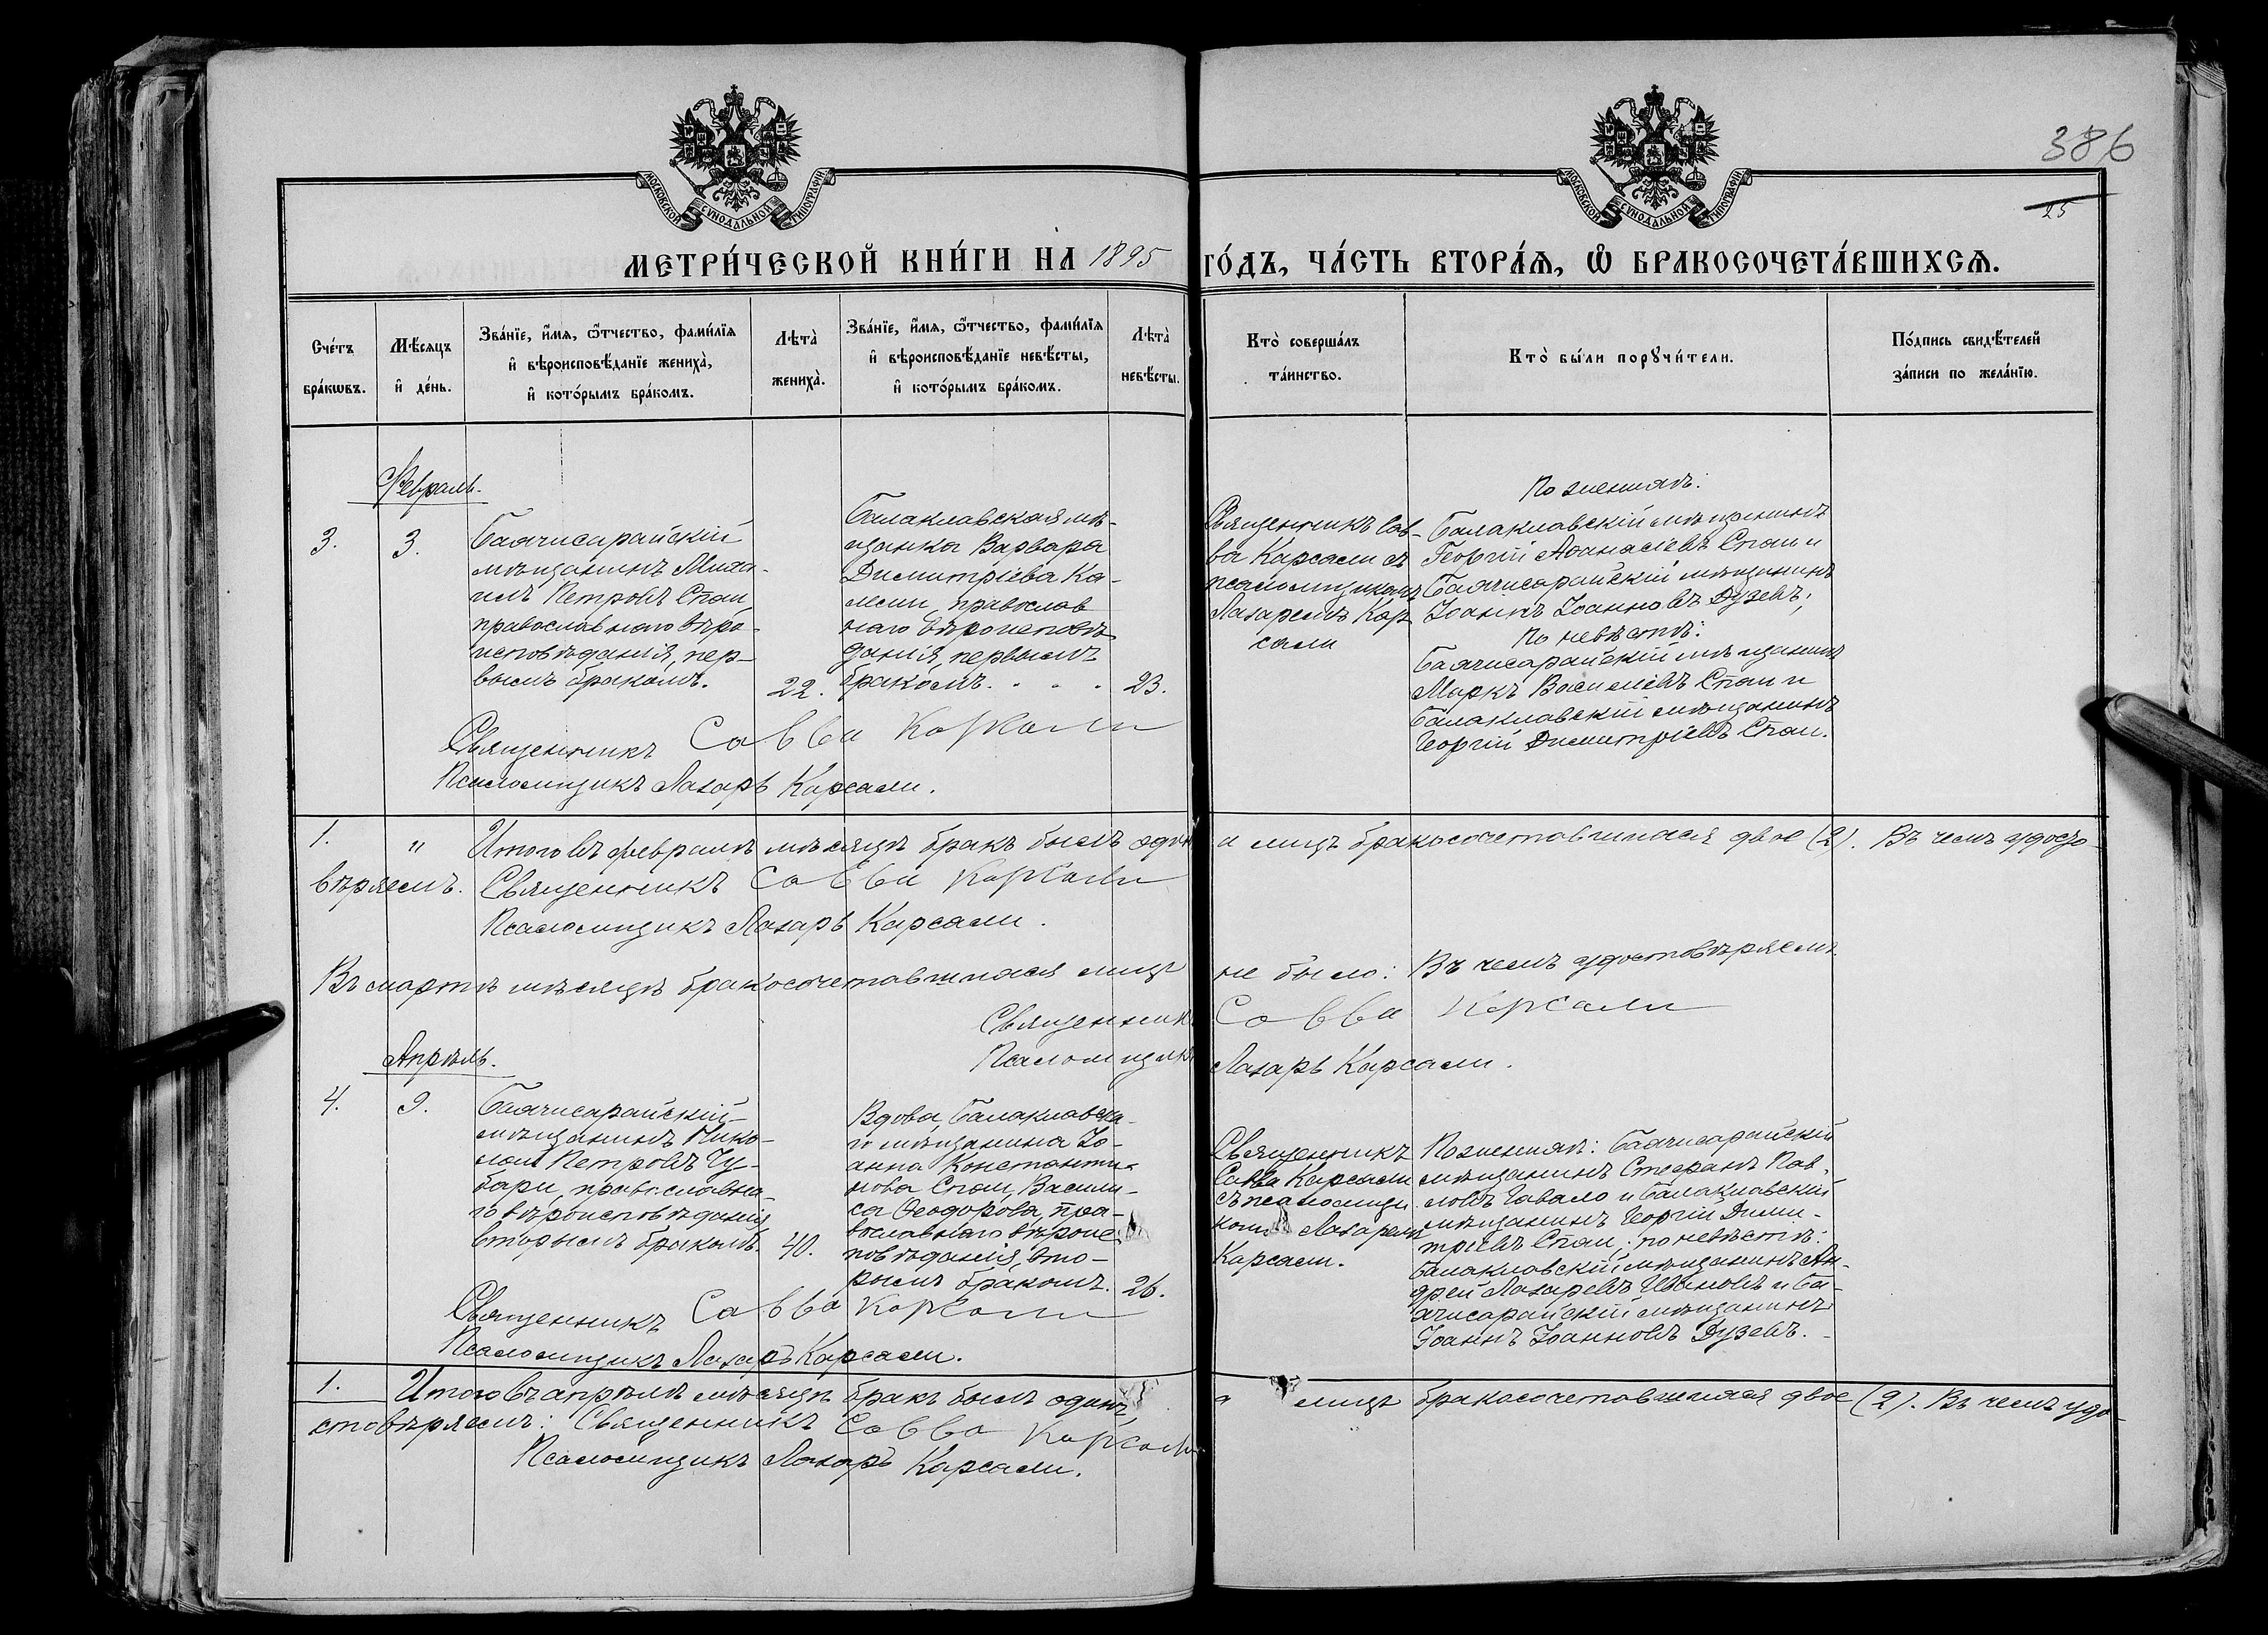 МОСКОВСКОЙ СУНОДАЛЬНОЙ ТИПОГРАФІИ
МОСКОВСКОЙ СУНОДАЛЬНОЙ ТИПОГРАФІИ
386
25
МЕТРИ́ЧЕСКОЙ КНИ́ГИ НА 1895 ГО́ДЪ, ЧА́СТЬ ВТОРА́Ѧ, Ѽ БРАКОСОЧЕТА́ВШИХСѦ.
Сче́тъ
бра́кѡвъ.
Мѣ́сяцъ
и҆ де́нь.
Зва́нїе, и҆́мѧ, ѻ҆́тчество, фами́лїѧ
и҆ вѣроисповѣ́данїе жениха̀,
и҆ кото́рымъ бра́комъ.
Лѣта̀
жениха̀.
Зва́нїе, и҆́мѧ, ѻ҆́тчество, фами́лїѧ
и҆ вѣроисповѣ́данїе невѣ́сты,
и҆ кото́рымъ бра́комъ.
Лѣта̀
невѣ́сты.
Кто̀ соверша́лъ
та́инство.
Кто̀ бы́ли порꙋчи́тели.
По́дпись свидѣ́телей
за́писи по жела́нїю.
Февраль.
3.
3.
Бахчисарайскій
мѣщанинъ Миха-
илъ Петровъ Спаи,
православнаго вѣро-
исповѣданія, пер-
вымъ бракомъ.
22.
Балаклавская мѣ-
щанка Варвара
Димитріева Ка-
лели, православ
наго вѣроисповѣ
данія, первымъ
бракомъ. . . .
23.
Священникъ Сав-
ва Карсали съ
псаломщикомъ
Лазаремъ Кар
сали
По женихѣ:
Балаклавскій мѣщанинъ
Георгій Аѳанасіевъ Спаи и
Бахчисарайскій мѣщанинъ
Іоаннъ Іоанновъ Дузевъ;
По невѣстѣ:
Бахчисарайскій мѣщанинъ
Маркъ Василіевъ Спаи и
Балаклавскій мѣщанинъ
Георгій Димитріевъ Спаи.
Священникъ Савва Карсали
Псаломщикъ Лазарь Карсали.
1. " Итого въ февралѣ мѣсяцѣ бракъ былъ одинъ а лицъ бракосочетавшихся двое (2). Въ чемъ удосто-
вѣряемъ. Священникъ Савва Карсали
Псаломщикъ Лазарь Карсали.
Въ мартѣ мѣсяцѣ бракосочетавшихся лицъ не было: Въ чемъ удостовѣряемъ.
Священникъ Савва Карсали
Псаломщикъ Лазарь Карсали.
Апрѣль.
4.
9.
Бахчисарайскій
мѣщанинъ Нико-
лай Петровъ Чу-
бари, православна-
го вѣроисповѣданія
вторымъ бракомъ.
40.
Вдова, Балаклавска-
го мѣщанина Іо-
анна Константи-
нова Спаи, Васили-
са Ѳеодорова, пра-
вославнаго вѣроис
повѣданія, вто-
рымъ бракомъ.
26.
Священникъ
Савва Карсали
съ псаломщи
комъ Лазаремъ
Карсали.
По женихѣ: Бахчисарайскій
мѣщанинъ Стефанъ Пав-
ловъ Чавало и Балаклавскій
мѣщанинъ Георгій Дими-
тріевъ Спаи; по невѣстѣ:
Балаклавскій мѣщанинъ Ан-
дрей Лазаревъ Ивановъ и Ба-
хчисарайскій мѣщанинъ
Іоаннъ Іоанновъ Дузевъ.
Священникъ Савва Карсали
Псаломщикъ Лазарь Карсали.
1. Итого въ апрѣлѣ мѣсяцѣ бракъ былъ одинъ, а лицъ бракосочетавшихся двое (2). Въ чемъ удо-
стовѣряемъ: Священникъ Савва Карсали
Псаломщикъ Лазарь Карсали.